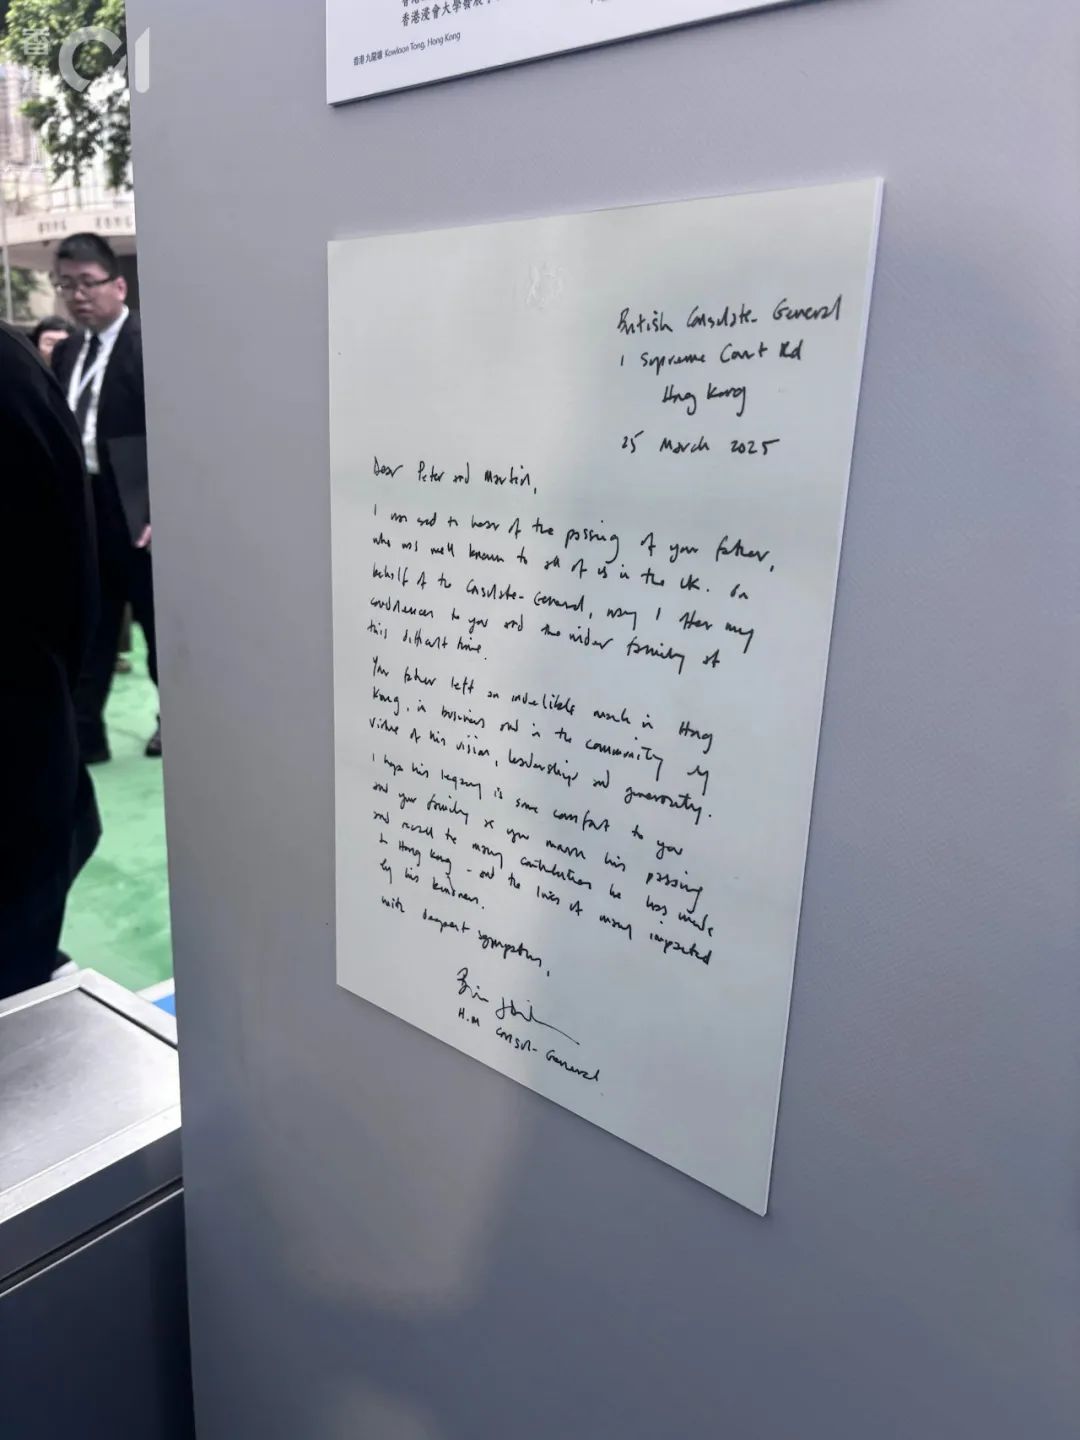 香港
01
香港浸會大學發展
香港 九龍塘 Kowloon Tong, Hong Kong
British Consulate-General
1 Supreme Court Rd
Hong Kong
25 March 2025
Dear Peter and Martin,
I was sad to hear of the passing of your father,
who was well known to all of us in the UK. On
behalf of the Consulate-General, may I offer my
condolences to you and the wider family at
this difficult time.
Your father left an indelible mark in Hong
Kong, in business and in the community by
virtue of his vision, leadership and generosity.
I hope his legacy is some comfort to you
and your family as you mourn his passing
and recall the many contributions he has made
to Hong Kong - and the lives of many impacted
by his kindness.
With deepest sympathy,
Brian
H.M Consul-General